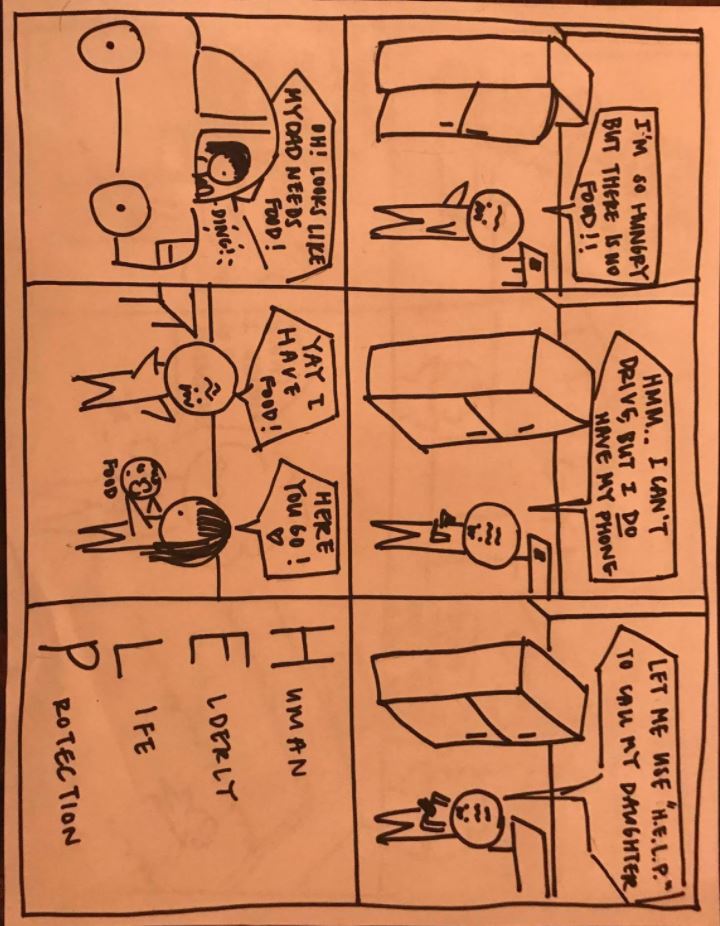 I'M SO HUNGRY
BUT THERE IS NO
FOOD!!
HMM.. I CAN'T
DRIVE, BUT I DO
HAVE MY PHONE
LET ME USE "H.E.L.P."
TO CALL MY DAUGHTER
OH! LOOKS LIKE
MY DAD NEEDS
FOOD!
DING!
YAY I
HAVE
FOOD!
HERE
YOU GO!
♡
FOOD
HUMAN
ELDERLY
LIFE
PROTECTION